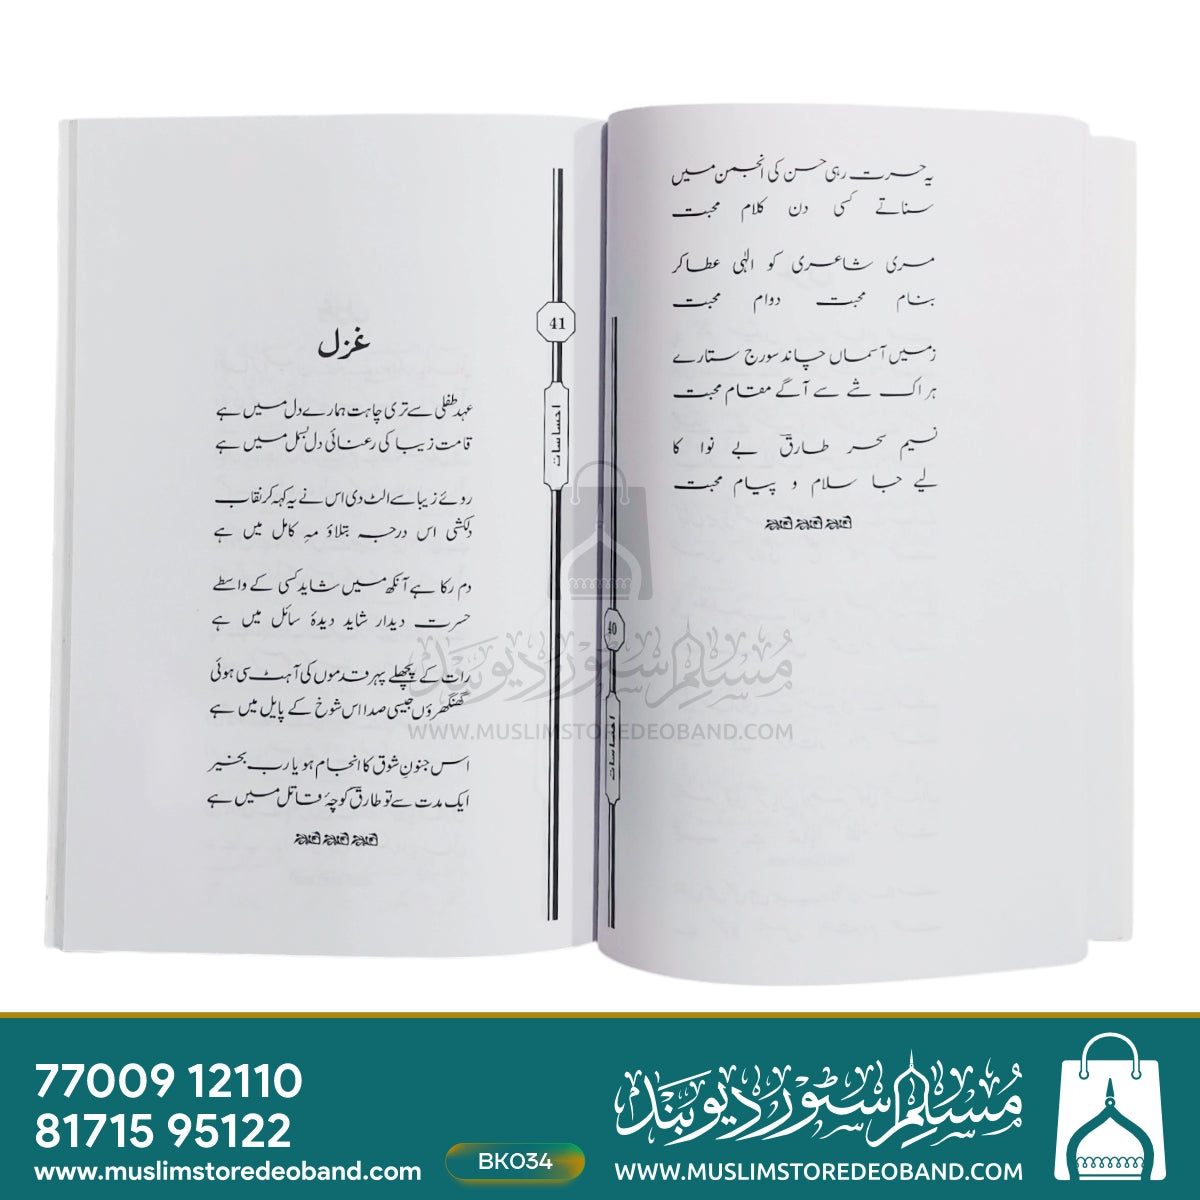 یہ حسرت رہی حسن کی انجمن میں
سناتے کسی دن کلام محبت
مری شاعری کو الٰہی عطا کر
بنام محبت دوام محبت
زمیں آسماں چاند سورج ستارے
ہر اک شے سے آگے مقام محبت
نسیم سحر طارقؔ بے نوا کا
لیے جا سلام و پیام محبت
40
احساسات
41
احساسات
غزل
عہد طفلی سے تری چاہت ہمارے دل میں ہے
قامت زیبا کی رعنائی دل بسمل میں ہے
روئے زیبا سے الٹ دی اس نے یہ کہہ کر نقاب
دلکشی اس درجہ بتلاؤ مہِ کامل میں ہے
دم رکا ہے آنکھ میں شاید کسی کے واسطے
حسرت دیدار شاید دیدۂ سائل میں ہے
رات کے پچھلے پہر قدموں کی آہٹ سی ہوئی
گھنگھروں جیسی صدا اس شوخ کے پایل میں ہے
اس جنونِ شوق کا انجام ہو یا رب بخیر
ایک مدت سے تو طارقؔ کوچۂ قاتل میں ہے
مسلم سٹور دیوبند
WWW.MUSLIMSTOREDEOBAND.COM
77009 12110
81715 95122
www.muslimstoredeoband.com
BK034
مسلم سٹور دیوبند
WWW.MUSLIMSTOREDEOBAND.COM